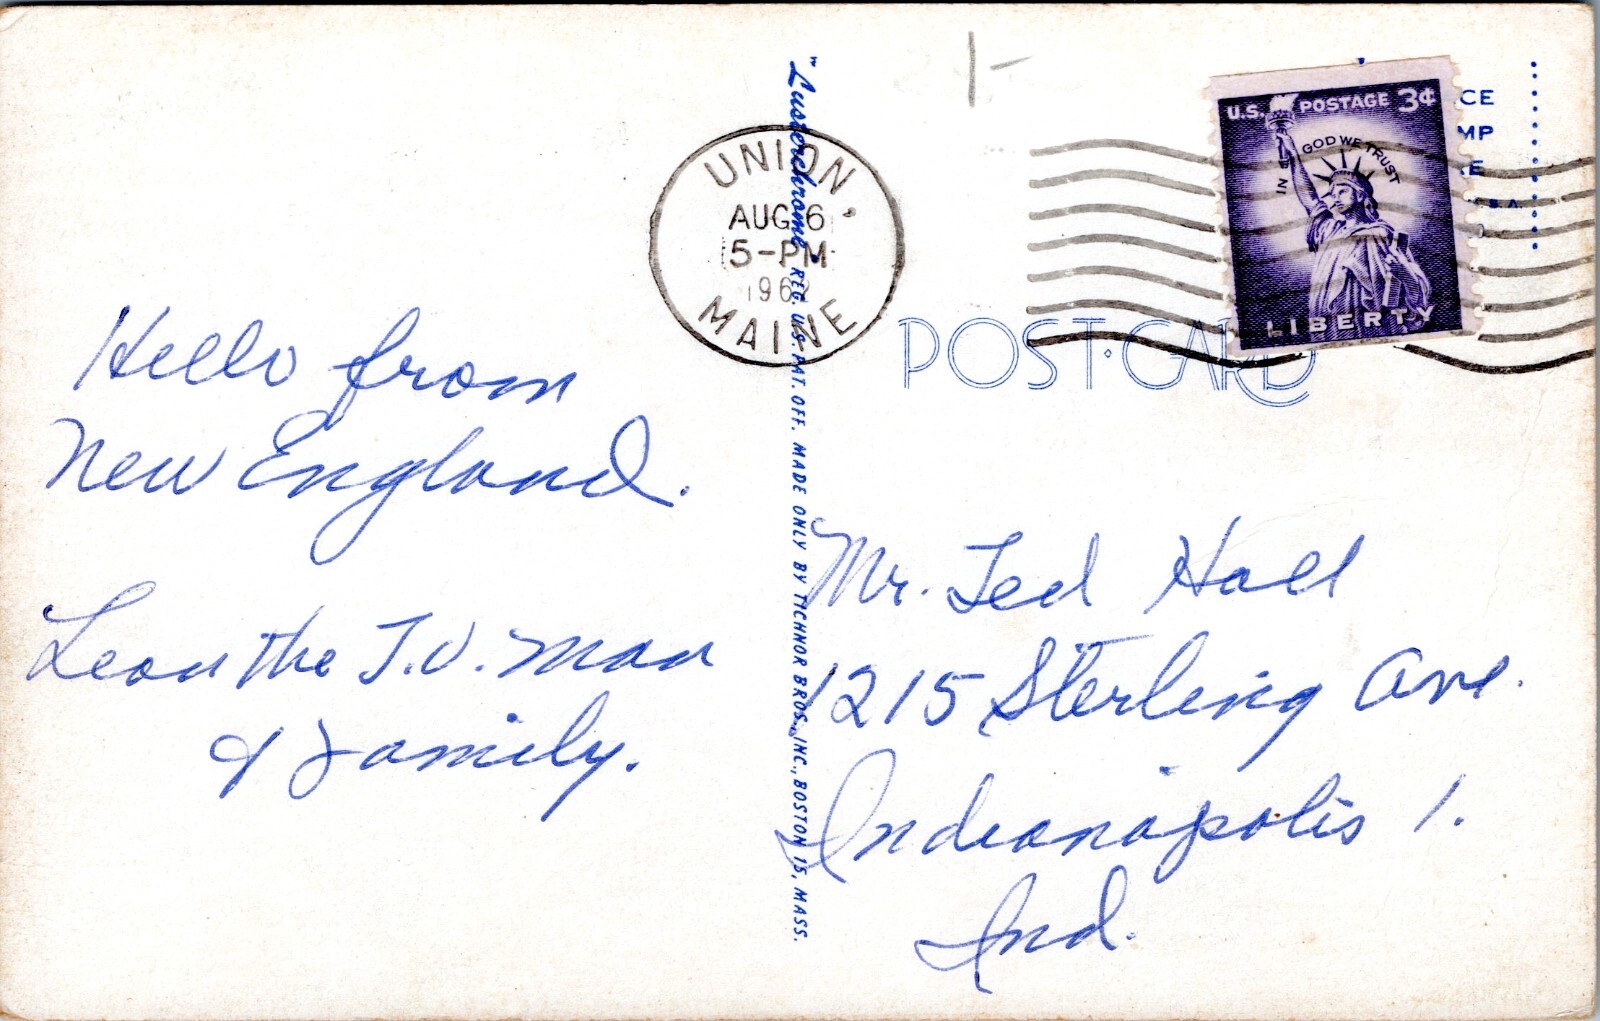 Hello from
New England.
Leon the T.V. Man
& Family.
"Lusterchrome" REG. U.S. PAT. OFF. MADE ONLY BY TICHNOR BROS., INC., BOSTON 15, MASS.
UNION,
AUG 6
5-PM
MAINE
1-
U.S. POSTAGE 3¢
IN GOD WE TRUST
LIBERTY
CE
MP
POST·CARD
Mr. Ted Hall
1215 Sterling Ave.
Indianapolis 1.
Ind.